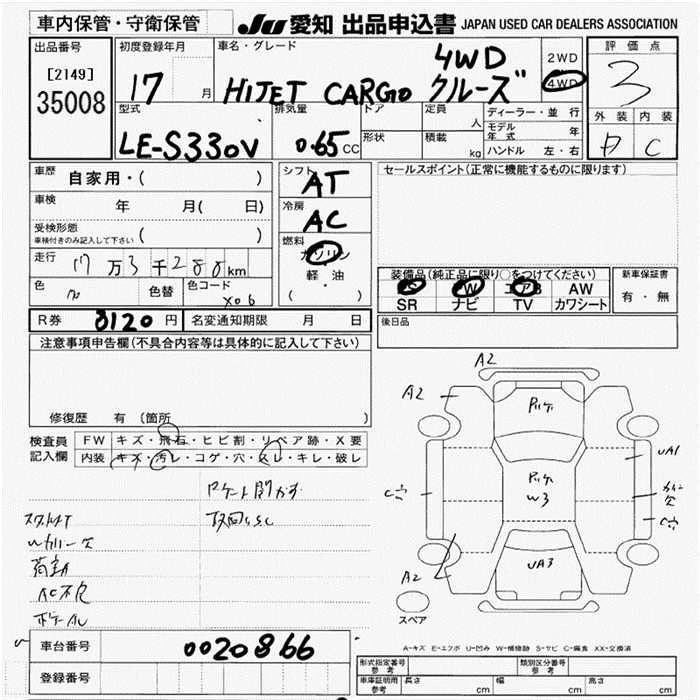 車内保管・守衛保管
JU 愛知 出品申込書 JAPAN USED CAR DEALERS ASSOCIATION
出品番号
[2149]
35008
初度登録年月
17 月
車名・グレード
4WD
HIJET CARGO クルーズ
2WD
4WD
評価点
3
外装 内装
C
型式
LE-S330V
排気量
0.65 CC
ドア
形状
定員 人
積載 kg
ディーラー・並行
モデル年式 年
ハンドル 左・右
車歴
自家用・( )
車検 年 月( 日)
受検形態
車検付きのみ記入して下さい ( )
走行 万 3 千 2 km
色 色替 色コード X06
シフト
AT
冷房
AC
燃料
ガソリン
軽油
( ・ )
セールスポイント(正常に機能するものに限ります)
装備品(純正品に限り○をつけてください)
エアB AW
SR ナビ TV カワシート
新車保証書
有・無
後日品
R券 8120 円 名変通知期限 月 日
注意事項申告欄(不具合内容等は具体的に記入して下さい)
修復歴 有 (箇所 )
検査員
記入欄
FW キズ・飛石・ヒビ割・リペア跡・X要
内装 キズ・汚レ・コゲ・穴・スレ・キレ・破レ
AC不良
A2
A2
W3
UA1
UA3
A2
スペア
A-キズ E-エクボ U-凹み W-補修跡 S-サビ C-腐食 XX-交換済
車台番号 0020866
登録番号
形式指定番号 参考
類別区分番号 参考
車庫証明用 参考 長さ cm 幅 cm 高さ cm